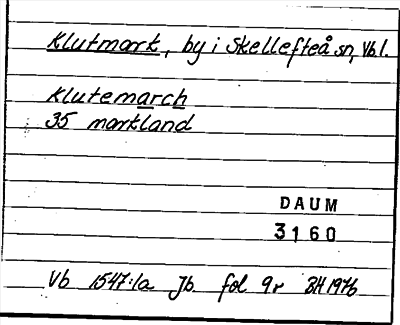 Klutmark, by i Skellefteå sn, Vb.l.
Klutemarch
35 markland
DAUM
3160
Vb 1547:1a Jb fol 9r BH 1976